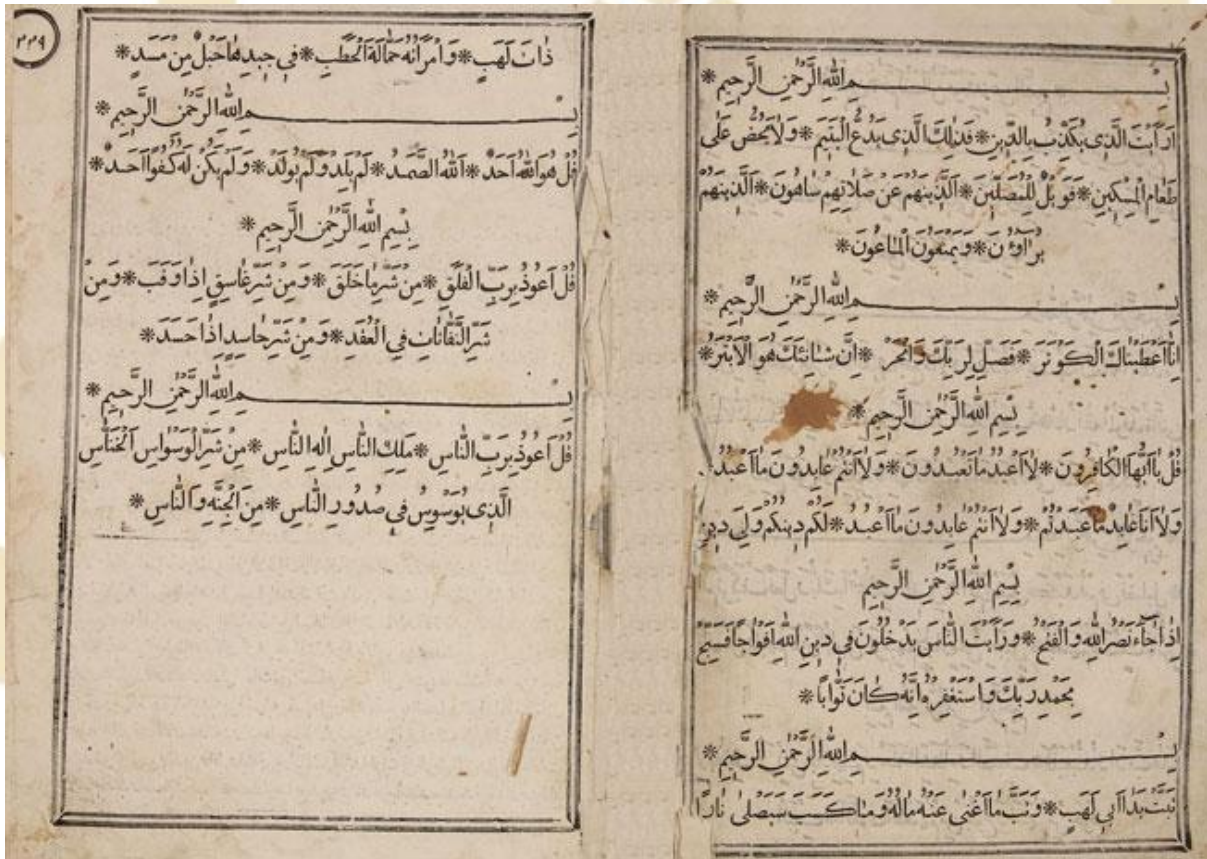 بِسْـــــــــمِ اللهِ الرَّحْمٰنِ الرَّحِيمِ ❋
اَرَاَيْتَ الَّذِى يُكَذِّبُ بِالدِّينِ ❋ فَذٰلِكَ الَّذِى يَدُعُّ الْيَتِيمَ ❋ وَلَا يَحُضُّ عَلٰى
طَعَامِ الْمِسْكِينِ ❋ فَوَيْلٌ لِلْمُصَلِّينَ ❋ اَلَّذِينَ هُمْ عَنْ صَلَاتِهِمْ سَاهُونَ ❋ اَلَّذِينَ هُمْ
يُرَاؤُنَ ❋ وَيَمْنَعُونَ الْمَاعُونَ ❋
بِسْـــــــــمِ اللهِ الرَّحْمٰنِ الرَّحِيمِ ❋
اِنَّا اَعْطَيْنَاكَ الْكَوْثَرَ ❋ فَصَلِّ لِرَبِّكَ وَانْحَرْ ❋ اِنَّ شَانِئَكَ هُوَ الْاَبْتَرُ ❋
بِسْمِ اللهِ الرَّحْمٰنِ الرَّحِيمِ ❋
قُلْ يَا اَيُّهَا الْكَافِرُونَ ❋ لَا اَعْبُدُ مَا تَعْبُدُونَ ❋ وَلَا اَنْتُمْ عَابِدُونَ مَا اَعْبُدُ
وَلَا اَنَا عَابِدٌ مَا عَبَدْتُمْ ❋ وَلَا اَنْتُمْ عَابِدُونَ مَا اَعْبُدُ ❋ لَكُمْ دِينُكُمْ وَلِىَ دِينِ
بِسْمِ اللهِ الرَّحْمٰنِ الرَّحِيمِ
اِذَا جَآءَ نَصْرُ اللهِ وَالْفَتْحُ ❋ وَرَاَيْتَ النَّاسَ يَدْخُلُونَ فِى دِينِ اللهِ اَفْوَاجًا فَسَبِّحْ
بِحَمْدِ رَبِّكَ وَاسْتَغْفِرْهُ اِنَّهُ كَانَ تَوَّابًا ❋
بِسْـــــــــمِ اللهِ الرَّحْمٰنِ الرَّحِيمِ ❋
تَبَّتْ يَدَا اَبِى لَهَبٍ ❋ وَتَبَّ مَا اَغْنٰى عَنْهُ مَالُهُ وَمَا كَسَبَ سَيَصْلٰى نَارًا
٢٢٩
ذَاتَ لَهَبٍ ❋ وَامْرَاَتُهُ حَمَّالَةَ الْحَطَبِ ❋ فِى جِيدِهَا حَبْلٌ مِنْ مَسَدٍ ❋
بِسْـــــــــمِ اللهِ الرَّحْمٰنِ الرَّحِيمِ ❋
قُلْ هُوَ اللهُ اَحَدٌ ❋ اَللهُ الصَّمَدُ ❋ لَمْ يَلِدْ وَلَمْ يُولَدْ ❋ وَلَمْ يَكُنْ لَهُ كُفُوًا اَحَدٌ ❋
بِسْمِ اللهِ الرَّحْمٰنِ الرَّحِيمِ ❋
قُلْ اَعُوذُ بِرَبِّ الْفَلَقِ ❋ مِنْ شَرِّ مَا خَلَقَ ❋ وَمِنْ شَرِّ غَاسِقٍ اِذَا وَقَبَ ❋ وَمِنْ
شَرِّ النَّفَّاثَاتِ فِى الْعُقَدِ ❋ وَمِنْ شَرِّ حَاسِدٍ اِذَا حَسَدَ ❋
بِسْـــــــــمِ اللهِ الرَّحْمٰنِ الرَّحِيمِ ❋
قُلْ اَعُوذُ بِرَبِّ النَّاسِ ❋ مَلِكِ النَّاسِ اِلٰهِ النَّاسِ ❋ مِنْ شَرِّ الْوَسْوَاسِ الْخَنَّاسِ
الَّذِى يُوَسْوِسُ فِى صُدُورِ النَّاسِ ❋ مِنَ الْجِنَّةِ وَالنَّاسِ ❋